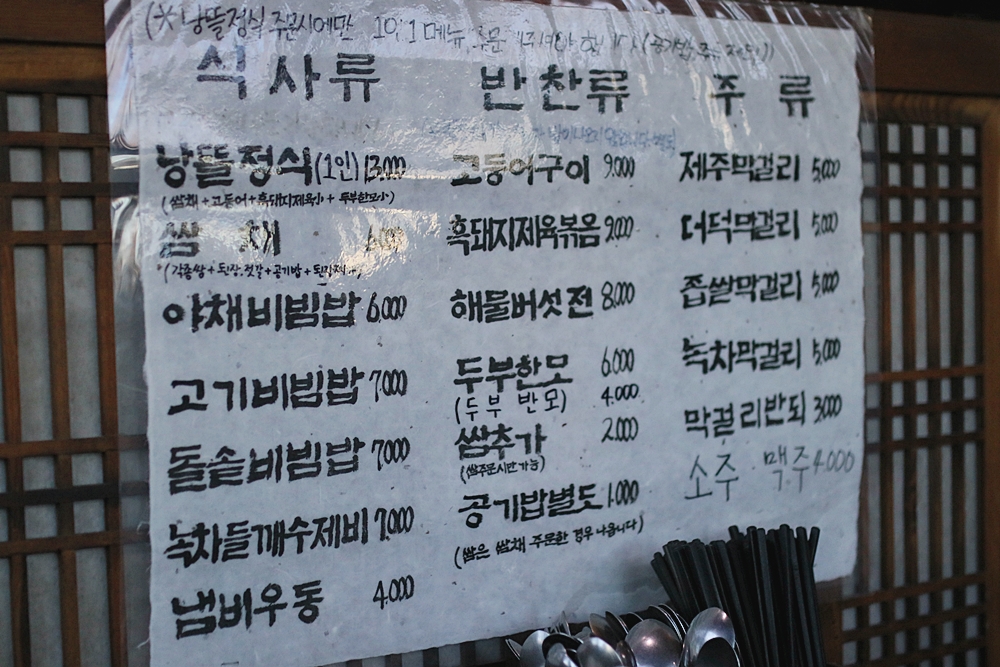 (※ 낭뜰정식 주문시에만 1인 1메뉴 주문
식사류
낭뜰정식(1인) 13,000
(쌈채+고등어+흑돼지제육小+두부한모小)
쌈 채
(각종쌈+된장,젓갈+공기밥+
야채비빔밥 6,000
고기비빔밥 7,000
돌솥비빔밥 7,000
녹차들깨수제비 7,000
냄비우동 4,000
반찬류
고등어구이 9,000
흑돼지제육볶음 9,000
해물버섯전 8,000
두부한모 6,000
(두부 반모) 4,000
쌈추가 2,000
(쌈주문시만 가능)
공기밥별도 1,000
(쌈은 쌈채 주문한 경우 나옵니다)
주류
제주막걸리 5,000
더덕막걸리 5,000
좁쌀막걸리 5,000
녹차막걸리 5,000
막걸리반되 3,000
소주 맥주 4,000